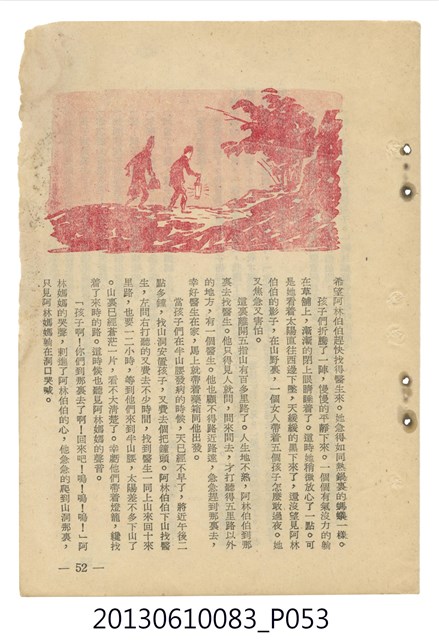 希望阿林伯伯趕快找得醫生來。她急得如同熱鍋裏的螞蟻一樣。
孩子們折騰了一陣，慢慢的平靜下來。一個個有氣沒力的躺
在草舖上，漸漸的閉上眼睛睡着了。這時她稍微放心了一點。可
是她看着太陽直往西邊下墜，天綫綫的黑下來了，還沒望見阿林
伯伯的影子，在山野裏，一個女人帶着五個孩子怎麼敢過夜。她
又焦急又害怕。
這裏離開五指山有百多里路了。人生地不熟，阿林伯伯到那
裏去找醫生。他只得見人就問，問來問去，才打聽得五里路以外
的地方，有一個醫生。他也顧不得路近路遠，急急趕到那裏去，
幸好醫生在家，馬上就帶着藥箱同他出發。
當孩子們在半山腰發痧的時候，天已經不早了，將近午後二
點多鐘，找山洞安置孩子，又費去個把鐘頭。阿林伯伯下山找醫
生，左問右打聽的又費去不少時間，找到醫生一同上山來回十來
里路，也要一二小時，等到他們來到半山腰，太陽差不多下山了
。山裏已經蒼茫一片，看不大清楚了。幸虧他們帶着燈籠，纔找
着了來時的路。這時候也聽見阿林媽媽的聲音。
「孩子啊！你們到那裏去了啊！回來吧！嗚！嗚！嗚！」阿
林媽媽的哭聲，刺進了阿林伯伯的心，他急急的爬到山洞那裏，
只見阿林媽媽躺在洞口哭喊。
— 52 —
20130610083_P053